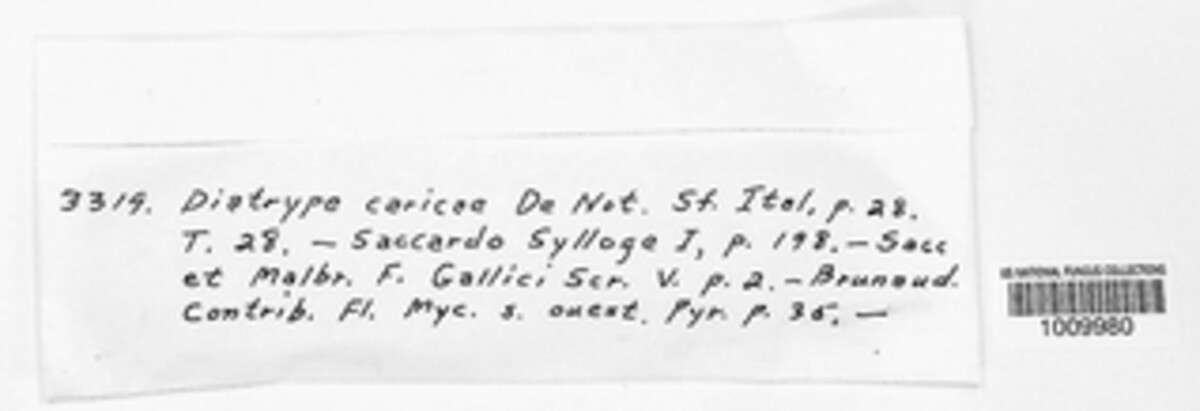 3319. Diatrype caricae De Not. Sf. Ital. p. 28.
T. 28. — Saccardo Sylloge I, p. 198. — Sacc
et Malbr. F. Gallici Ser. V. p. 2. — Brunaud.
Contrib. Fl. Myc. s. ouest. Pyr. p. 35. —
US NATIONAL FUNGUS COLLECTIONS
1009980